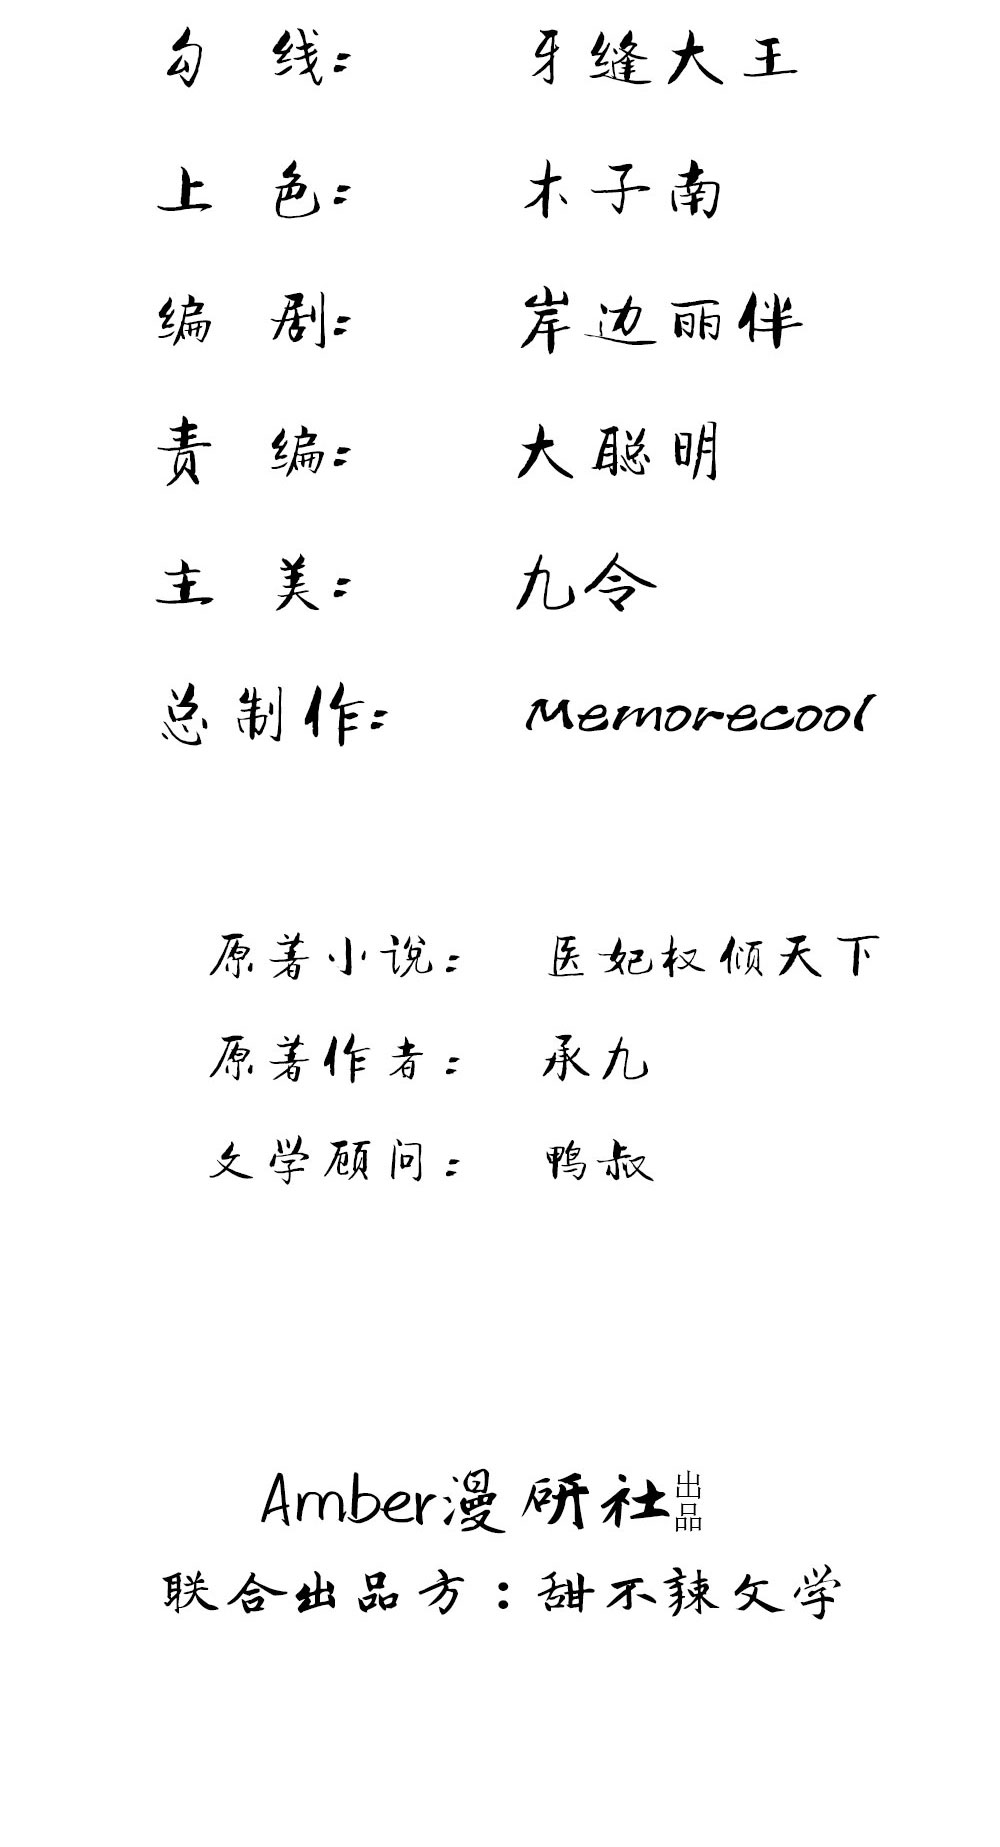 勾 线：牙缝大王
上 色：木子南
编 剧：岸边丽伴
责 编：大聪明
主 美：九令
总制作：Memorecool
原著小说：医妃权倾天下
原著作者：承九
文学顾问：鸭叔
Amber漫研社出品
联合出品方：甜不辣文学